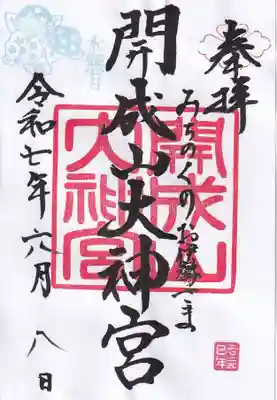 奉拝
みちのくのお伊勢さま
開成山大神宮
令和七年六月八日
開成山
大神宮
水無月
二〇二五
巳年